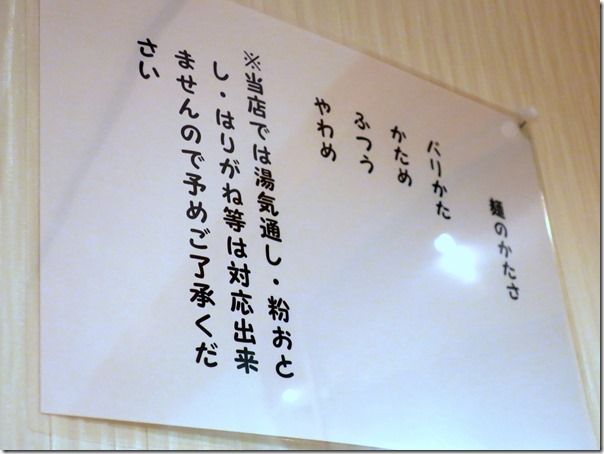 麺のかたさ
バリかた
かため
ふつう
やわめ
※当店では湯気通し・粉おと
し・はりがね等は対応出来
ませんので予めご了承くだ
さい